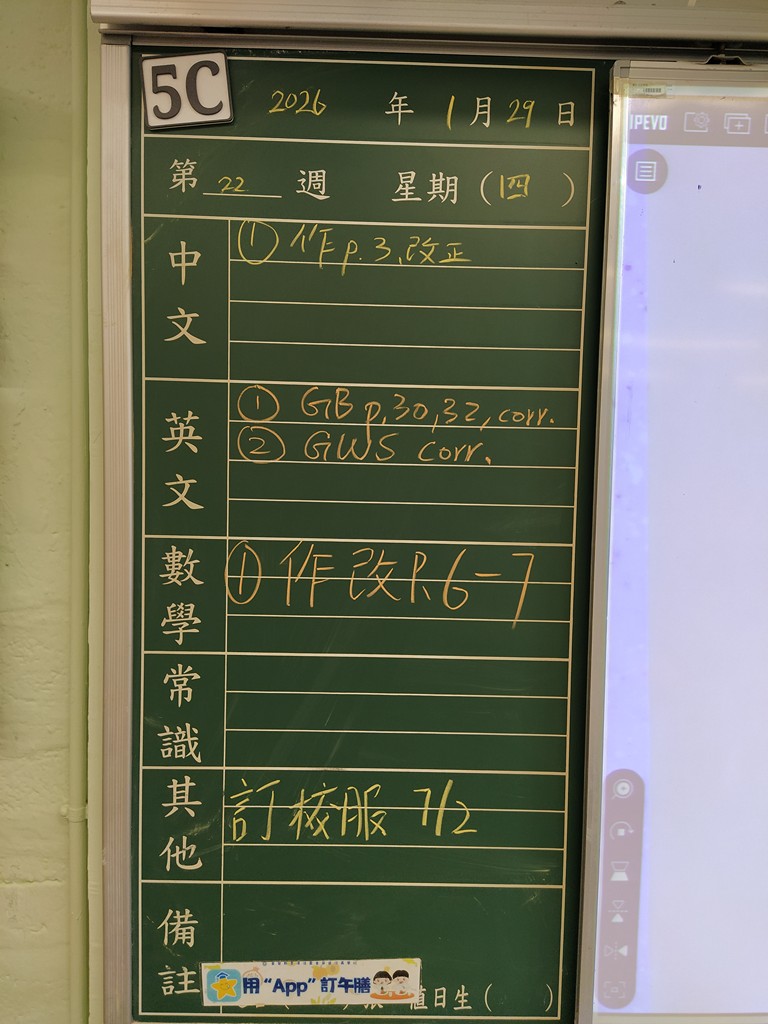 5C
2026 年 1 月 29 日
第 22 週 星期（四）
中文
① 作 p.3,改正
英文
① GB p.30,32, corr.
② GWS corr.
數學
① 作 改 P.6-7
常識
其他
訂校服 7/2
備註
用“App”訂午膳
值日生（ ）
IPEVO